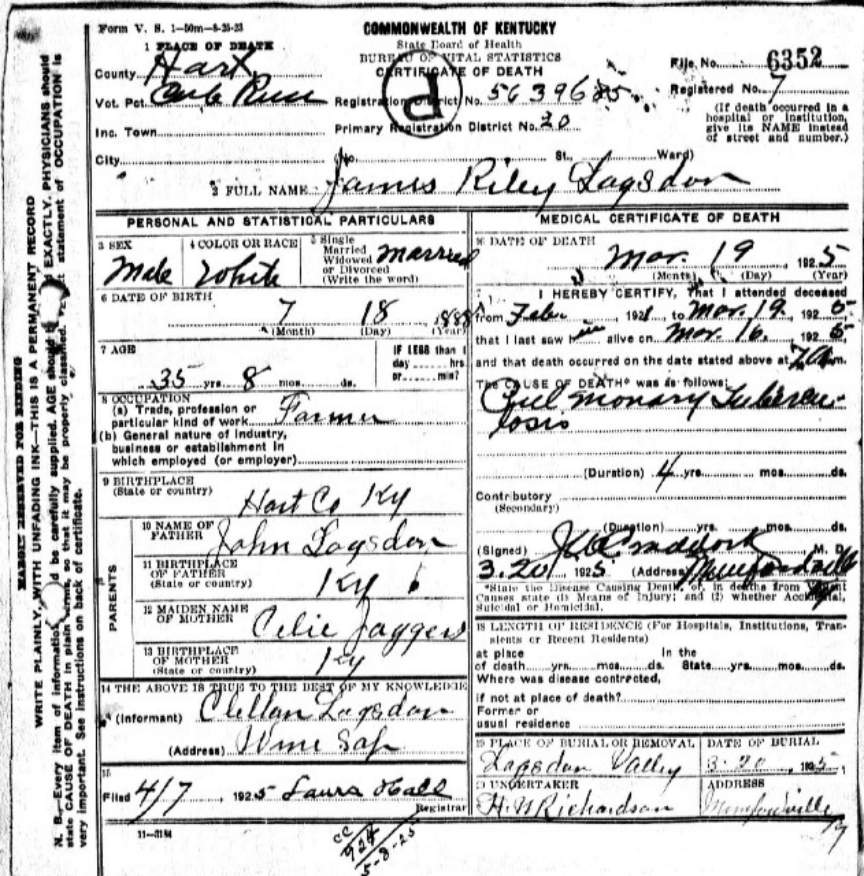 Form V. S. 1—50m—8-25-23
COMMONWEALTH OF KENTUCKY
State Board of Health
BUREAU OF VITAL STATISTICS
CERTIFICATE OF DEATH
File No. 6352
Registered No. 7
(If death occurred in a
hospital or institution,
give its NAME instead
of street and number.)
1 PLACE OF DEATH
County Hart
Vot. Pct.
Registration District No.
Inc. Town
Primary Registration District No. 20
City (No. St., Ward)
2 FULL NAME James Riley Logsdon
PERSONAL AND STATISTICAL PARTICULARS
3 SEX
Male
4 COLOR OR RACE
White
5 Single
Married
Widowed
or Divorced
(Write the word)
Married
6 DATE OF BIRTH
7 18 1888
(Month) (Day) (Year)
7 AGE
35 yrs. 8 mos. ds.
IF LESS than 1
day hrs
or min?
8 OCCUPATION
(a) Trade, profession or
particular kind of work Farmer
(b) General nature of industry,
business or establishment in
which employed (or employer)
9 BIRTHPLACE
(State or country)
Hart Co Ky
PARENTS
10 NAME OF
FATHER
John Logsdon
11 BIRTHPLACE
OF FATHER
(State or country)
Ky
12 MAIDEN NAME
OF MOTHER
Celie Jaggers
13 BIRTHPLACE
OF MOTHER
(State or country)
Ky
14 THE ABOVE IS TRUE TO THE BEST OF MY KNOWLEDGE
(Informant) Clellan Logsdon
(Address) Wine Sap
15
Filed 4/7, 1925 Laura Hall
Registrar
11—3184
MEDICAL CERTIFICATE OF DEATH
16 DATE OF DEATH
Mar. 19 1925
(Month) (Day) (Year)
I HEREBY CERTIFY, That I attended deceased
from 192 to Mar. 19, 1925
that I last saw him alive on Mar. 16, 1925
and that death occurred on the date stated above at m.
The CAUSE OF DEATH* was as follows:
Pulmonary Tubercu-
losis
(Duration) 4 yrs. mos. ds.
Contributory
(Secondary)
(Duration) yrs. mos. ds.
(Signed) Craddock M. D.
3-20, 1925 (Address) Munfordville
*State the Disease Causing Death, or, in deaths from Violent
Causes state (1) Means of Injury; and (2) whether Accidental,
Suicidal or Homicidal.
18 LENGTH OF RESIDENCE (For Hospitals, Institutions, Tran-
sients or Recent Residents)
at place In the
of death yrs. mos. ds. State yrs. mos. ds.
Where was disease contracted,
if not at place of death?
Former or
usual residence
19 PLACE OF BURIAL OR REMOVAL
Logsdon Valley
DATE OF BURIAL
3-20, 1925
20 UNDERTAKER
H. N Richardson
ADDRESS
Munfordville
MARGIN RESERVED FOR BINDING
WRITE PLAINLY, WITH UNFADING INK—THIS IS A PERMANENT RECORD
N. B.—Every item of information should be carefully supplied. AGE should be stated EXACTLY. PHYSICIANS should
state CAUSE OF DEATH in plain terms, so that it may be properly classified. statement of OCCUPATION is
very important. See instructions on back of certificate.
cc
924
5-8-25